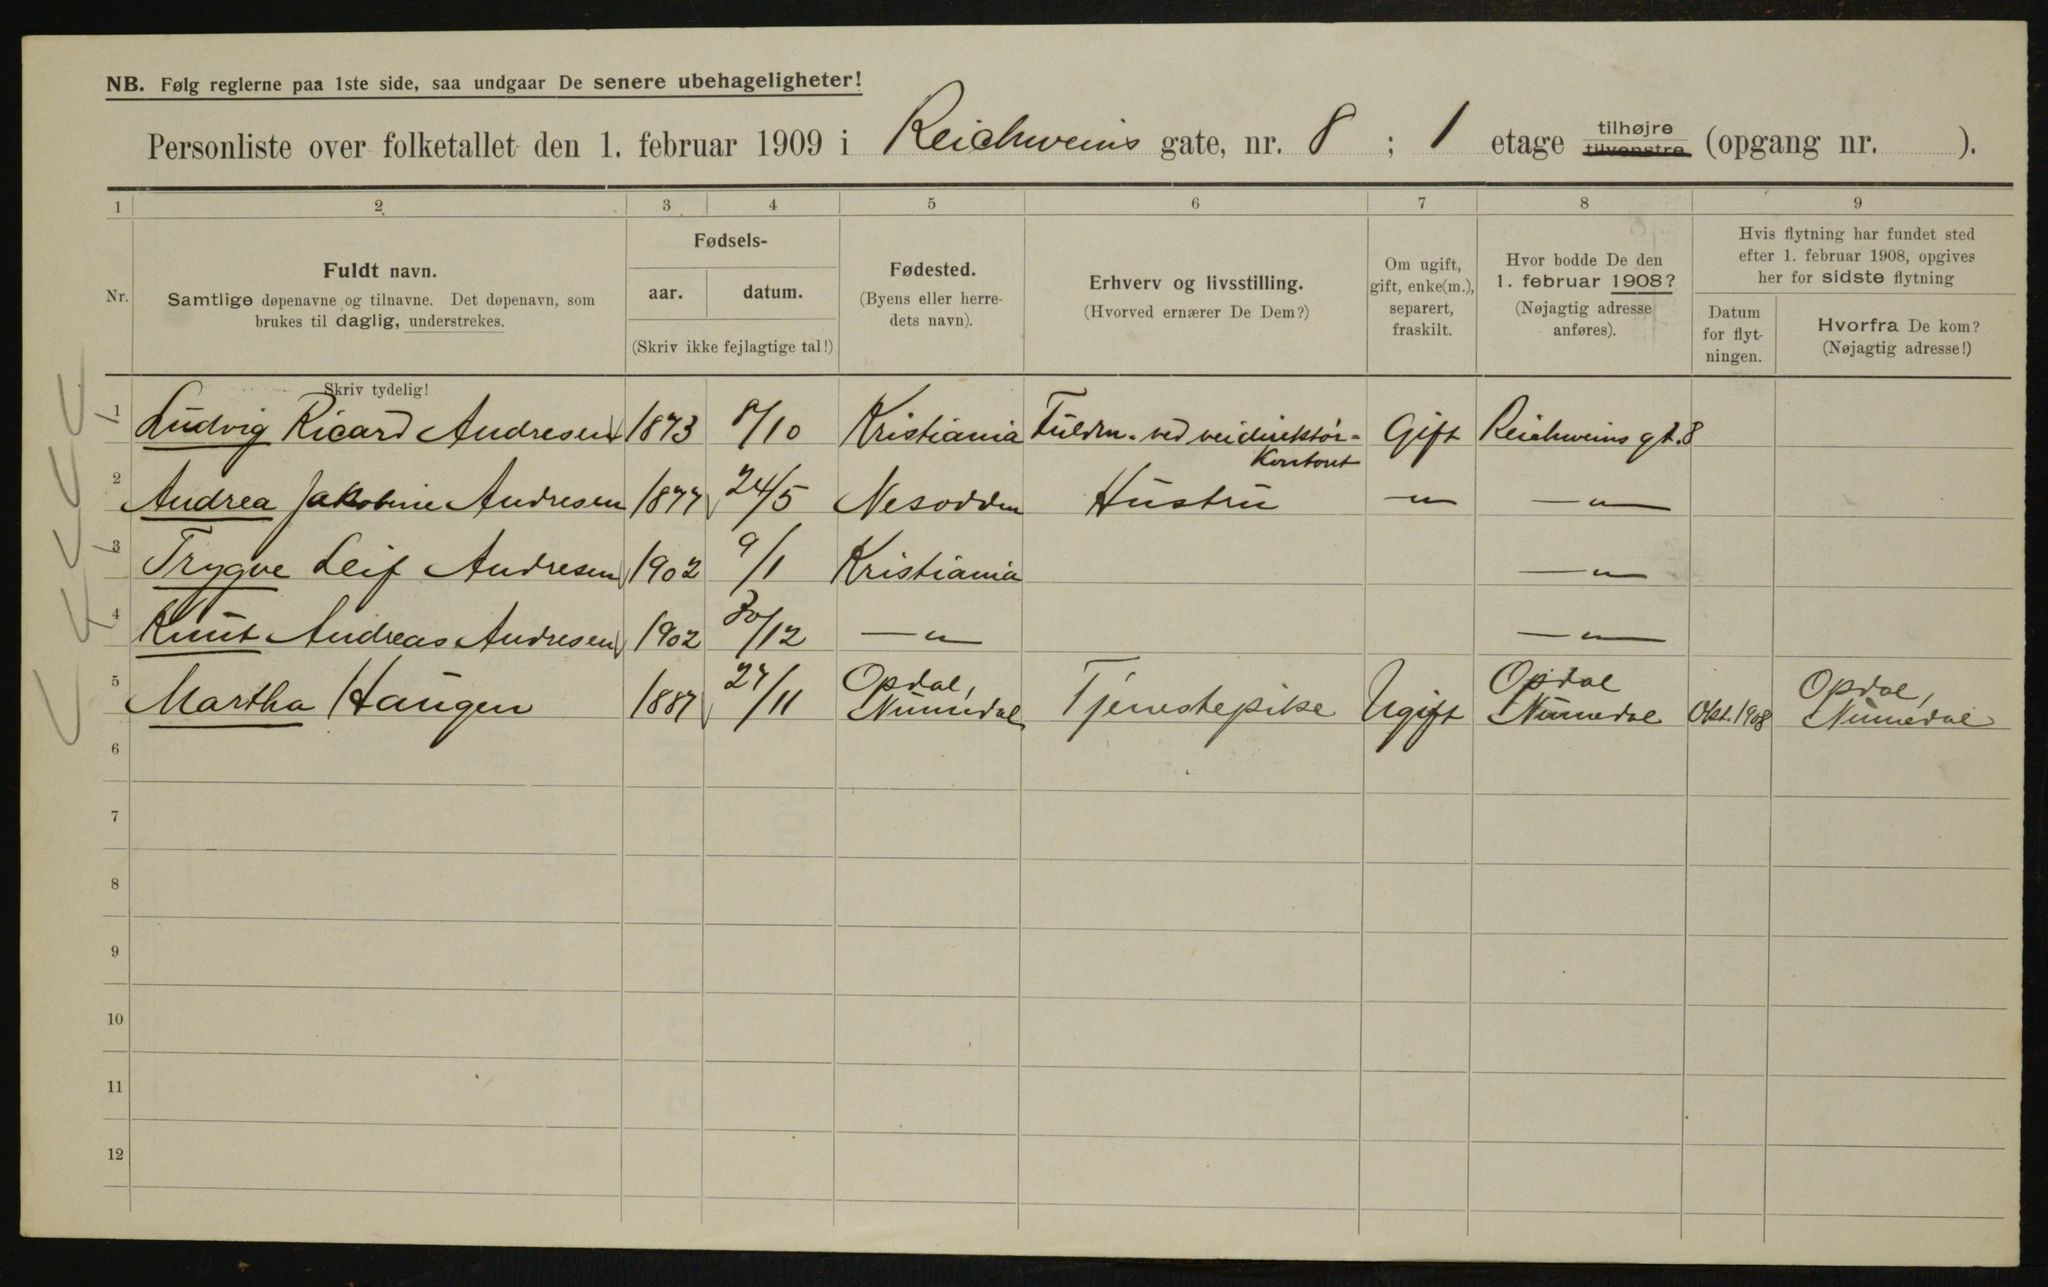 NB. Følg reglerne paa 1ste side, saa undgaar De senere ubehageligheter!
Personliste over folketallet den 1. februar 1909 i Reichweins gate, nr. 8 ; 1 etage tilhøjre tilvenstre (opgang nr. ).
1 2 3 4 5 6 7 8 9
Nr.
Fuldt navn.
Samtlige døpenavne og tilnavne. Det døpenavn, som
brukes til daglig, understrekes.
Fødsels-
aar. datum.
(Skriv ikke fejlagtige tal!)
Fødested.
(Byens eller herre-
dets navn).
Erhverv og livsstilling.
(Hvorved ernærer De Dem?)
Om ugift,
gift, enke(m.),
separert,
fraskilt.
Hvor bodde De den
1. februar 1908?
(Nøjagtig adresse
anføres).
Hvis flytning har fundet sted
efter 1. februar 1908, opgives
her for sidste flytning
Datum
for flyt-
ningen.
Hvorfra De kom?
(Nøjagtig adresse!)
Skriv tydelig!
1 Ludvig Ricard Andresen 1873 8/10 Kristiania Fuldm. ved veidirektør- Gift Reichweins gt. 8
Kontoret
2 Andrea Jakobine Andresen 1877 24/5 Nesodden Hustru —"— —"—
3 Trygve Leif Andresen 1902 9/1 Kristiania —"—
4 Knut Andreas Andresen 1902 30/12 —"— —"—
5 Martha Haugen 1887 27/11 Opdal, Numedal Tjenestepike Ugift Opdal Numedal Okt. 1908 Opdal, Numedal
6
7
8
9
10
11
12